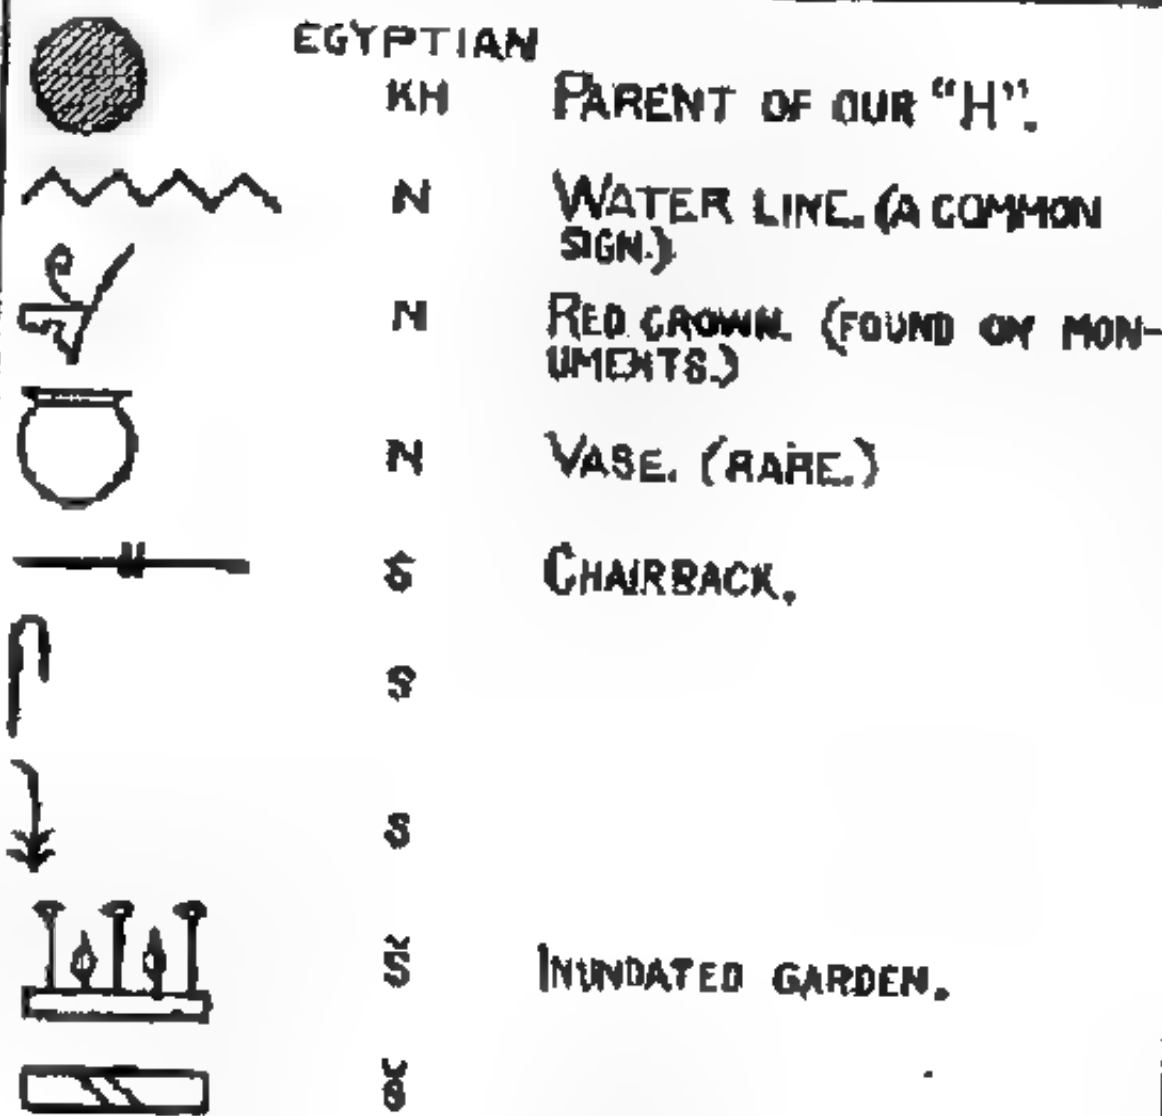 EGYPTIAN
KH PARENT OF OUR "H".
N WATER LINE. (A COMMON
SIGN.)
N RED CROWN. (FOUND ON MON-
UMENTS.)
N VASE. (RARE.)
Ś CHAIRBACK.
S
S
Š INUNDATED GARDEN.
Š